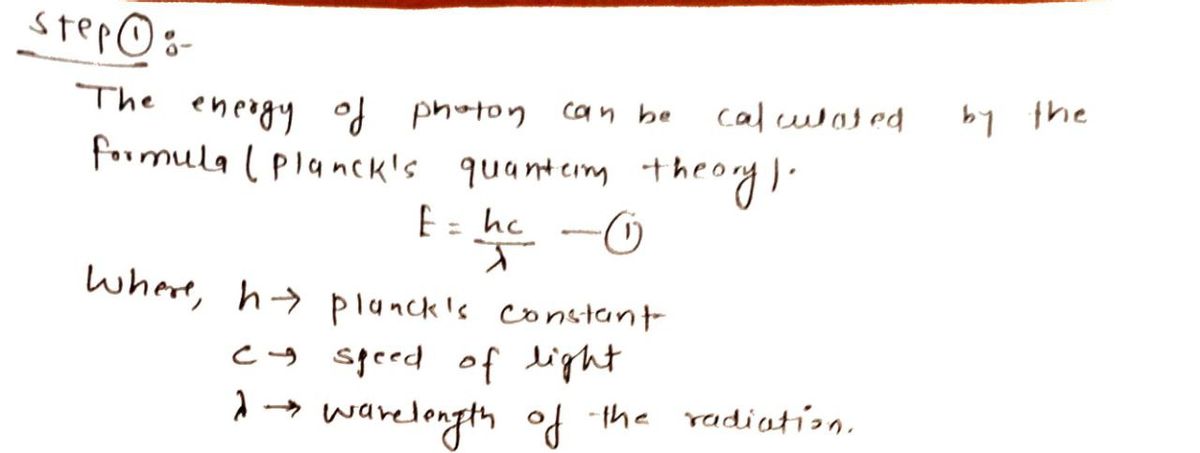 Step ① :-
The energy of photon can be calculated by the
formula (Planck's quantum theory).
E = hc/λ — ①
Where, h → planck's constant
c → speed of light
λ → wavelength of the radiation.